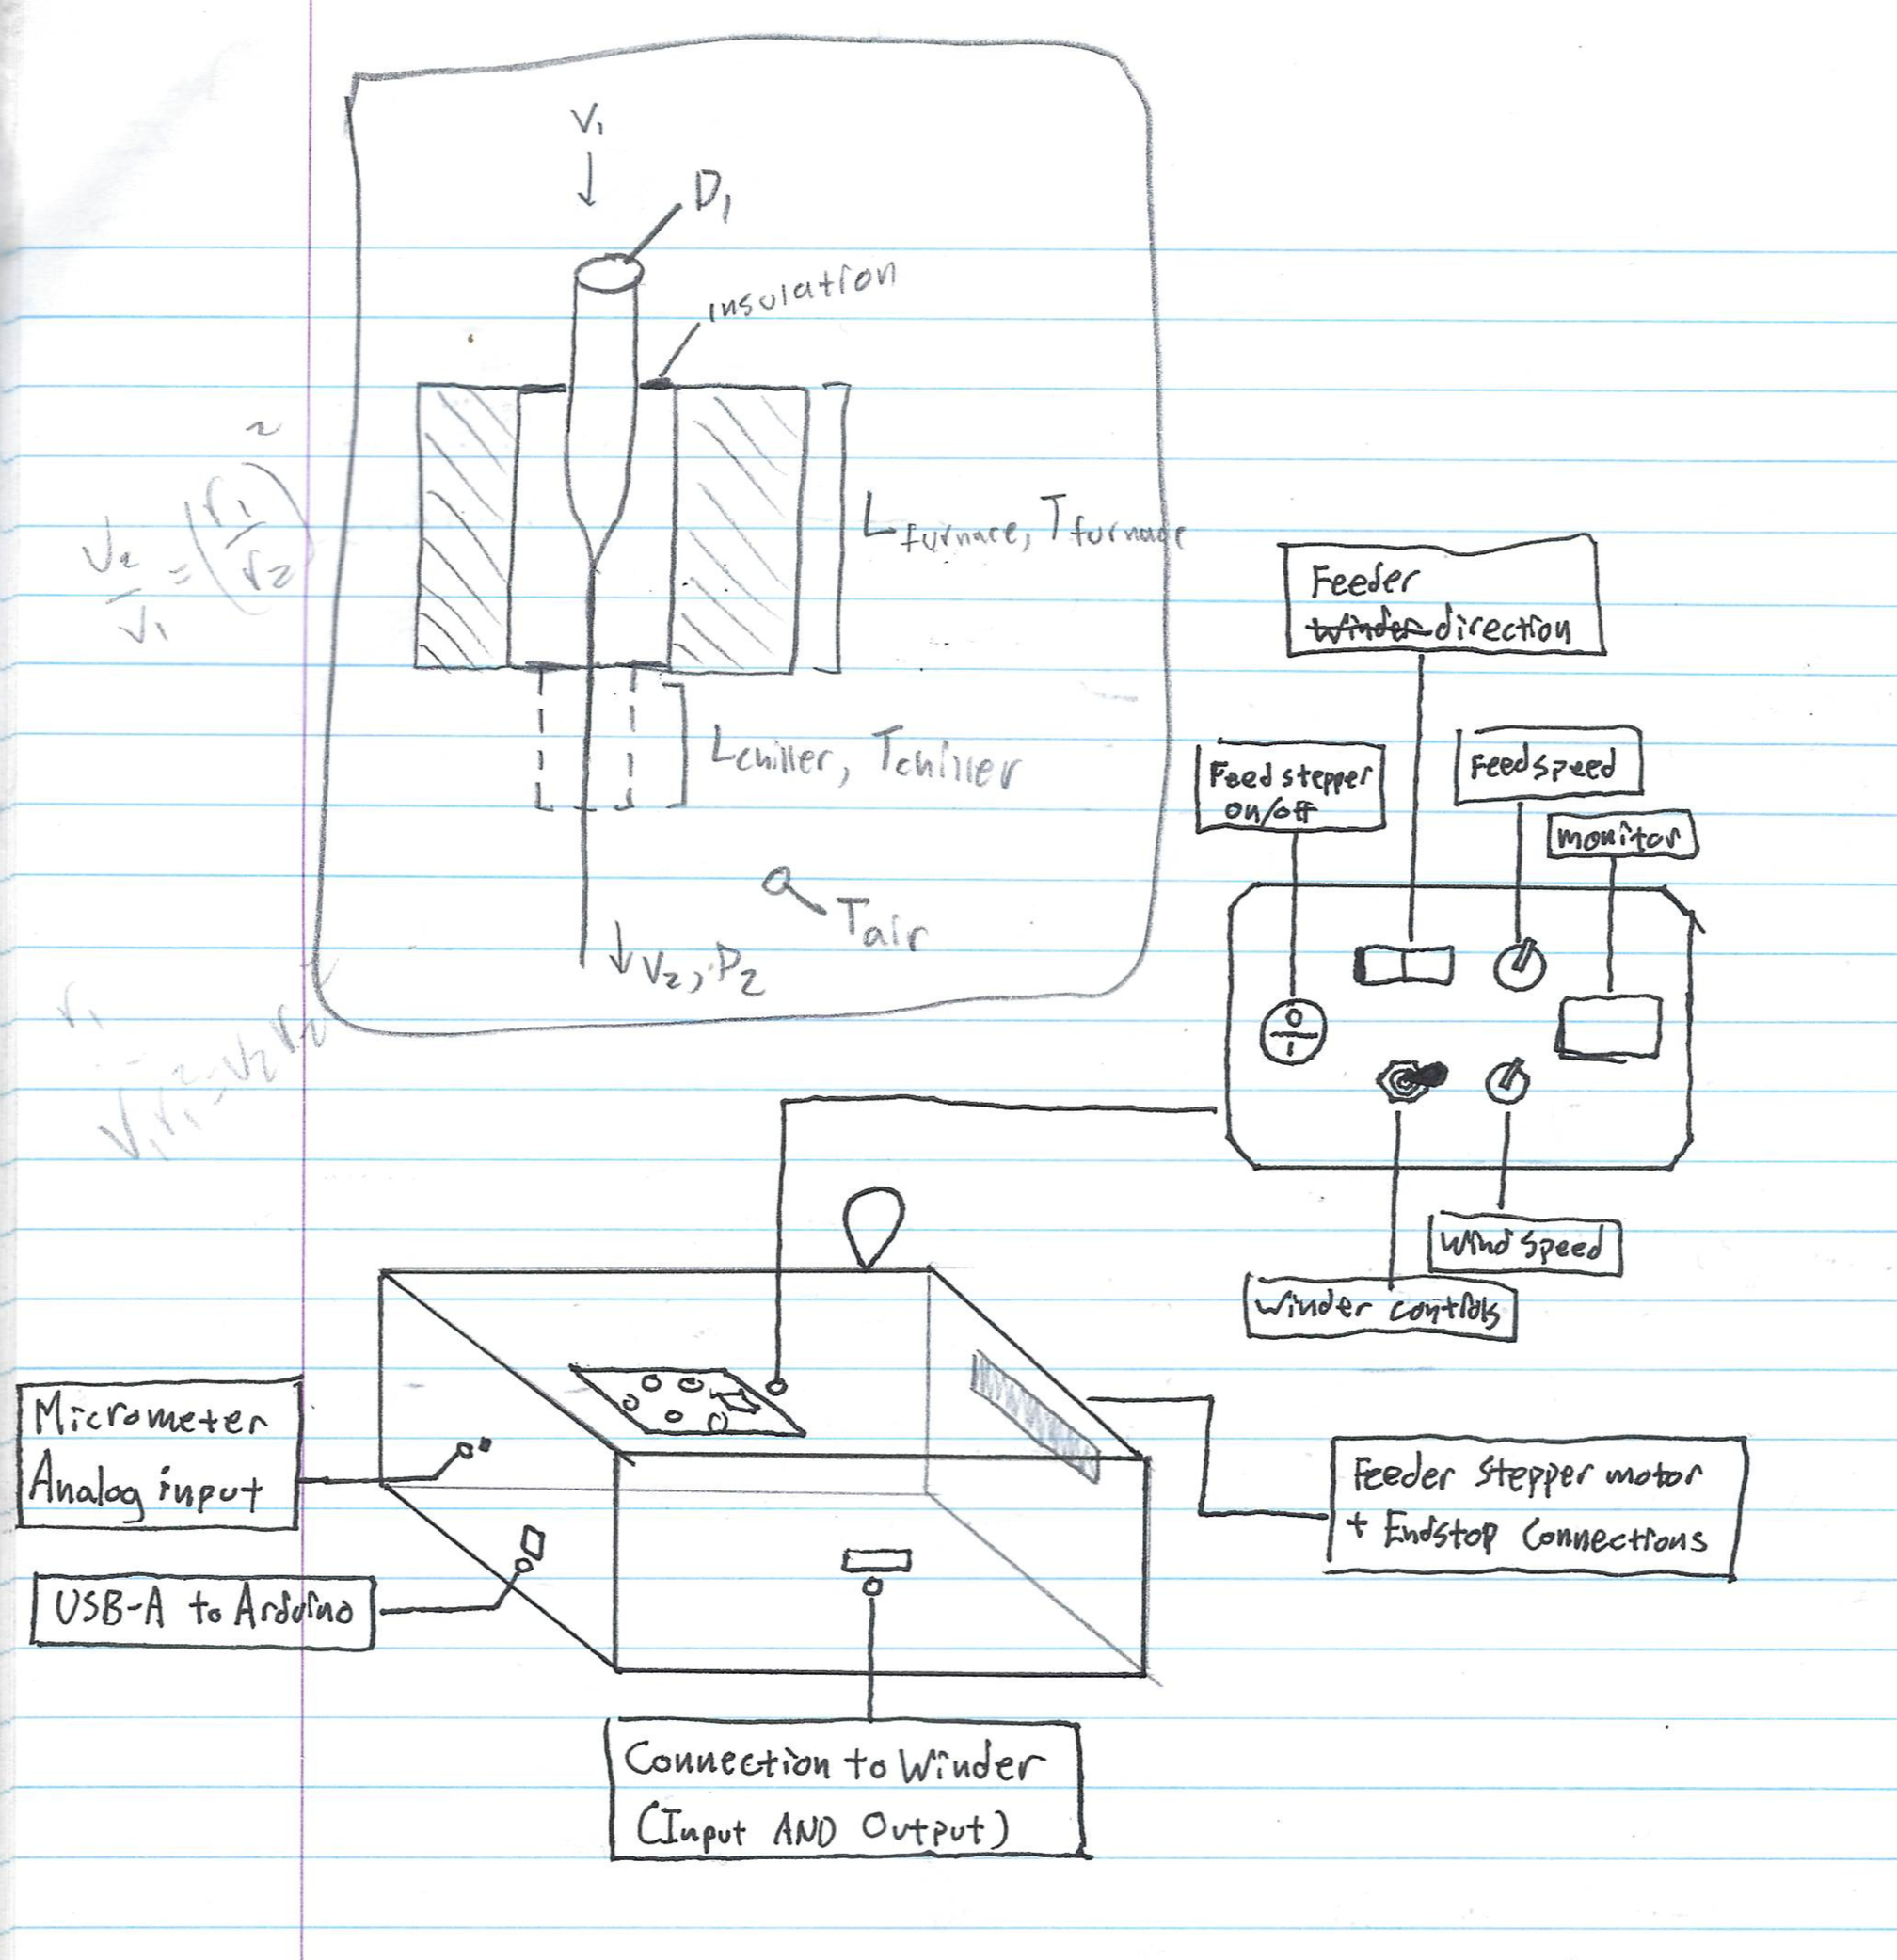 V₁
D₁
insulation
V₂/V₁ = (r₁/r₂)²
L furnace, T furnace
L chiller, T chiller
T air
V₂, D₂
r₁
V₁r₁² = V₂r₂
Feeder
Winder direction
Feed stepper
on/off
Feed speed
monitor
O
I
Wind speed
Winder controls
Micrometer
Analog input
USB-A to Arduino
Feeder stepper motor
+ Endstop Connections
Connection to Winder
(Input AND Output)